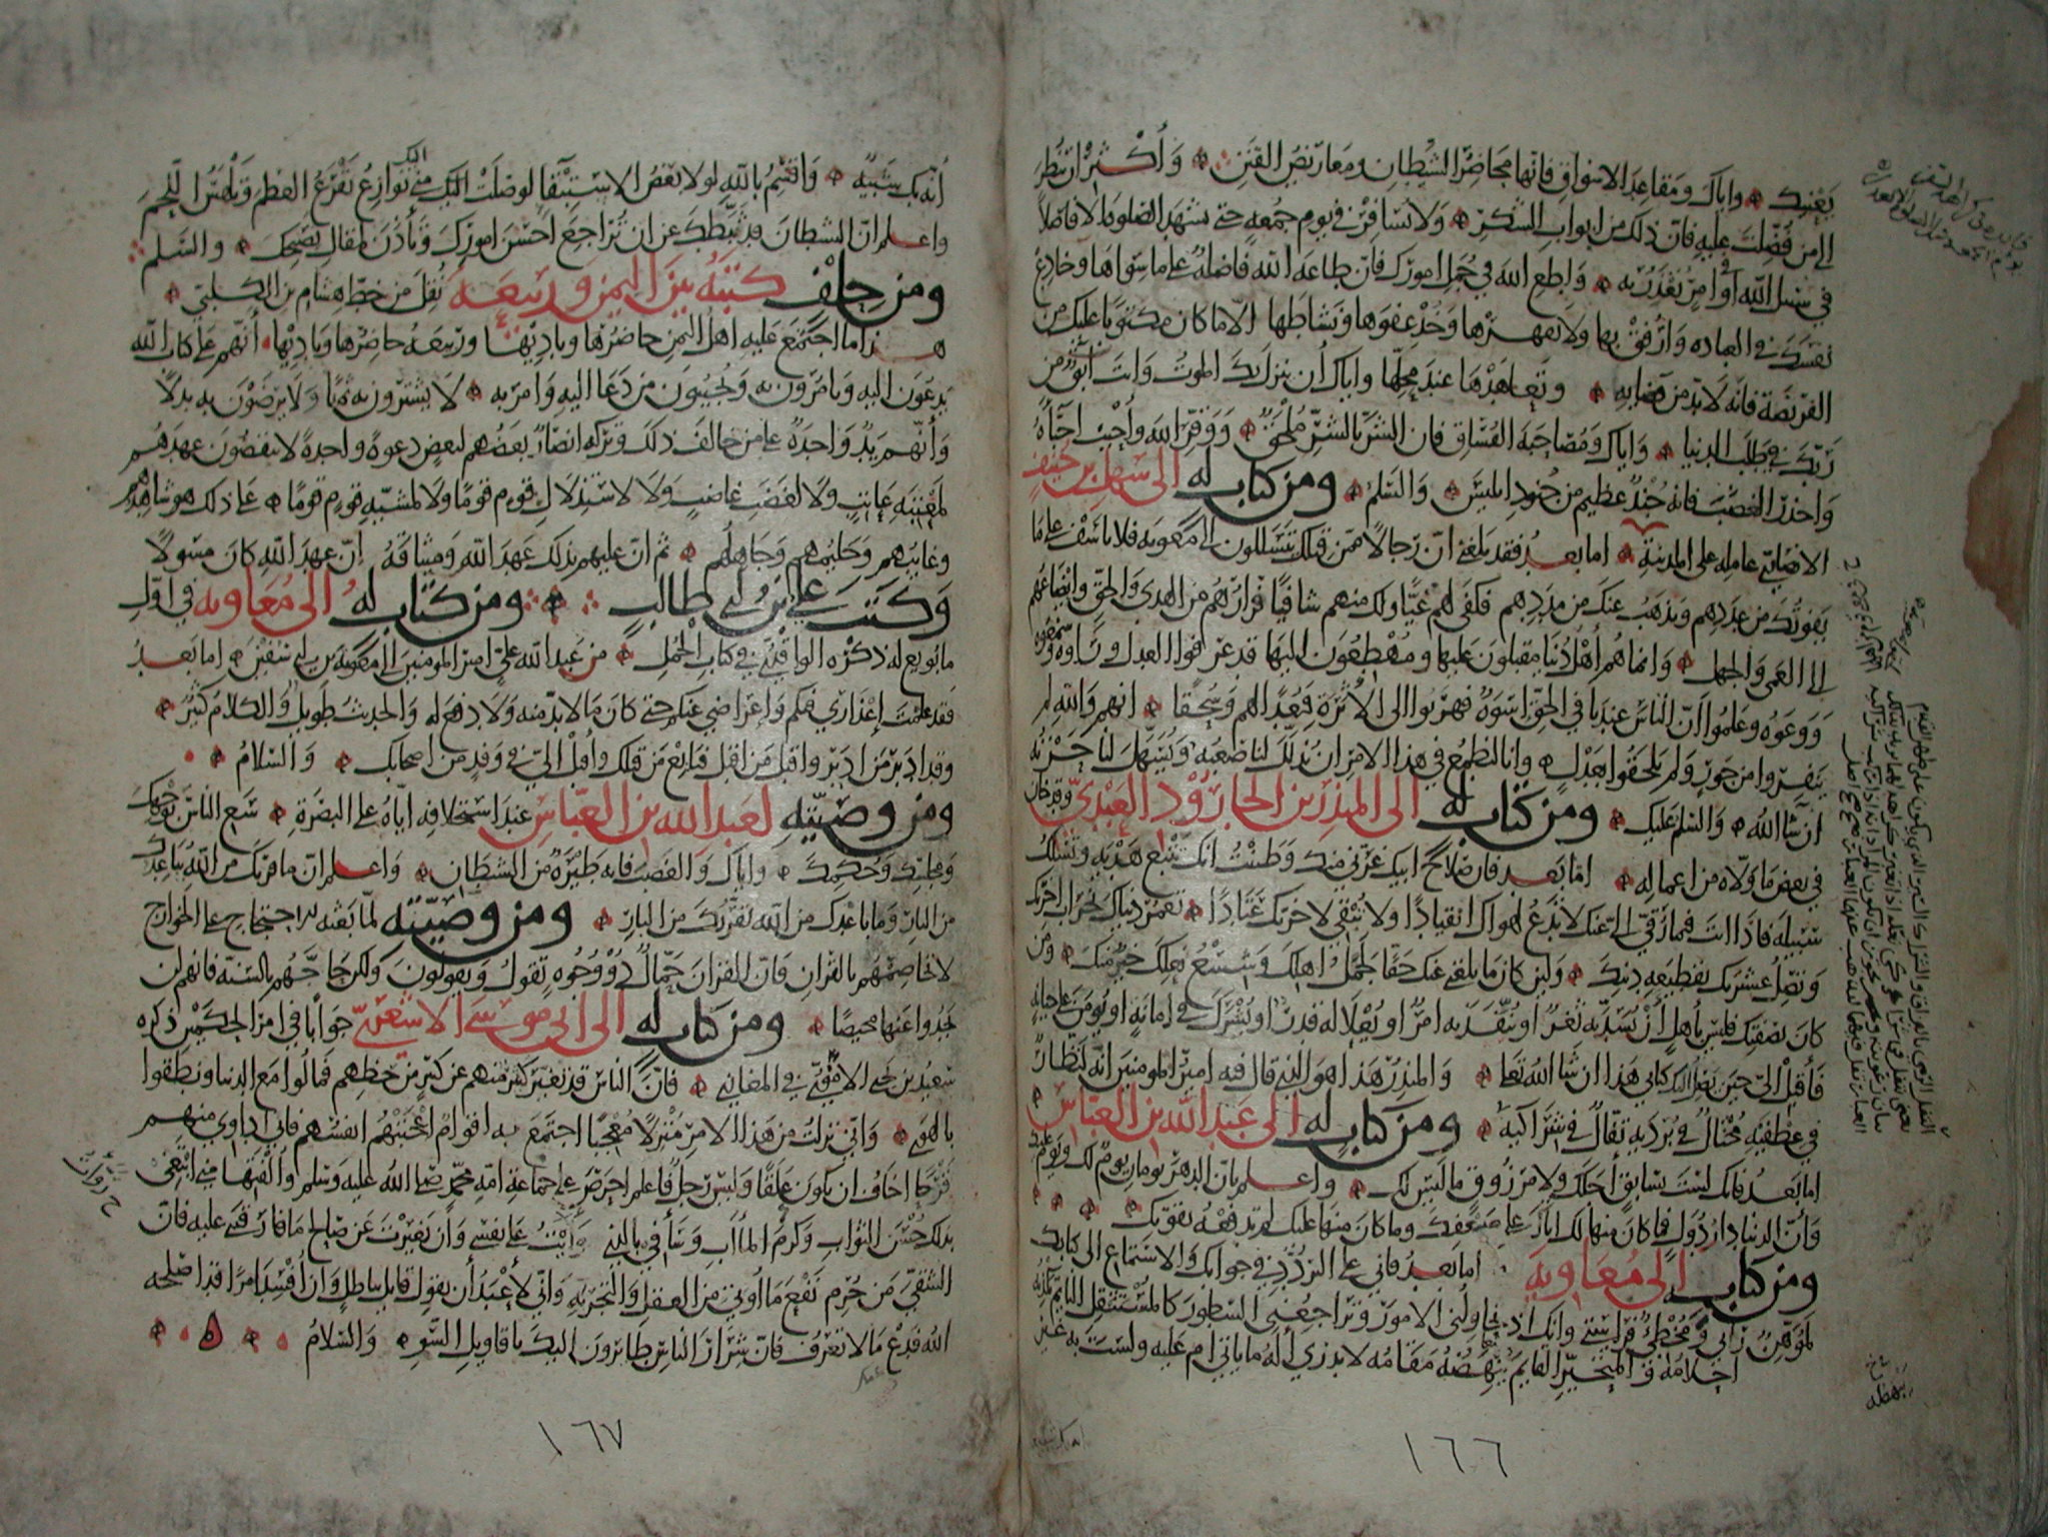 يعنيك واياك ومقاعد الاسواق فانها محاضر الشيطان ومعاريض الفتن واكثر ان تنظر
الى من فضلت عليه فان ذلك من ابواب الشكر ولا تسافر في يوم جمعة حتى تشهد الصلوة الا فاصلا
في سبيل الله او امر تعذر به واطع الله في جمل امورك فان طاعة الله فاضلة على ما سواها وخادع
نفسك في العبادة وارفق بها ولا تقهرها وخذ عفوها ونشاطها الا ما كان مكتوبا عليك من
الفريضة فانه لا بد من قضايها وتعاهدها عند محلها واياك ان ينزل بك الموت وانت آبق من
ربك في طلب الدنيا واياك ومصاحبة الفساق فان الشر بالشر ملحق ووقر الله واحبب احباه
واحذر الغضب فانه جند عظيم من جنود ابليس والسلم ومن كتاب له الى سهل بن حنيف
الانصاري عامله على المدينة اما بعد فقد بلغني ان رجالا ممن قبلك يتسللون الى معوية فلا تاسف على ما
يفوتك من عددهم ويذهب عنك من مددهم فكفى لهم غيا ولك منهم شافيا فرارهم من الهدى والحق وايضاعهم
الى العمى والجهل وانما هم اهل دنيا مقبلون عليها ومهطعون اليها قد عرفوا العدل وراوه وسمعوه
ووعوه وعلموا ان الناس عندنا في الحق اسوة فهربوا الى الاثرة فبعدا لهم وسحقا انهم والله لم
ينفروا من جور ولم يلحقوا بعدل وانا لنطمع في هذا الامر ان يذلل لنا صعبه ويسهل لنا حزنه
ان شا الله والسلم عليك ومن كتاب له الى المنذر بن الجارود العبدي وقد خان
في بعض ما ولاه من اعماله اما بعد فان صلاح ابيك غرني منك وظننت انك تتبع هديه وتسلك
سبيله فاذا انت فيما رقي الي عنك لا تدع لهواك انقيادا ولا تبقي لاخرتك عتادا تعمر دنياك بخراب اخرتك
وتصل عشيرتك بقطيعة دينك ولئن كان ما بلغني عنك حقا لجمل اهلك وشسع نعلك خير منك ومن
كان بصفتك فليس باهل ان يسد به ثغر او ينفذ به امر او يعلا له قدر او يشرك في امانة او يؤمن على جباية
فاقبل الي حين يصل اليك كتابي هذا ان شا الله تعا والمنذر هذا هو الذي قال فيه امير المومنين انه لنظار
في عطفيه مختال في برديه تفال في شراكيه ومن كتاب له الى عبد الله بن العباس
اما بعد فانك لست بسابق اجلك ولا مرزوق ما ليس لك واعلم بان الدهر يومان يوم لك ويوم عليك
وان الدنيا دار دول فما كان منها لك اتاك على ضعفك وما كان منها عليك لم تدفعه بقوتك
ومن كتاب له الى معاوية اما بعد فاني على التردد في جوابك والاستماع الى كتابك
لموهن رايي ومخطئ فراستي وانك اذ تحاولني الامور وتراجعني السطور كالمستثقل النايم تكذبه
احلامه والمتحير القايم يبهضه مقامه لا يدري اله ما ياتي ام عليه ولست به غير
١٦٦
انه بك شبيه واقسم بالله لولا بعض الاستبقا لوصلت اليك مني نوازع تقرع العظم وتلهس اللحم
واعلم ان الشيطان قد ثبطك عن ان تراجع احسن امورك وتأذن لمقال نصيحك والسلم
ومن حلف كتبه بين اليمن وربيعة نقل من خط هشام بن الكلبي
هذا ما اجتمع عليه اهل اليمن حاضرها وباديها وربيعة حاضرها وباديها انهم على كتاب الله
يدعون اليه ويامرون به ويجيبون من دعا اليه وامر به لا يشترون به ثمنا ولا يرضون به بدلا
وانهم يد واحدة على من خالف ذلك وتركه انصار بعضهم لبعض دعوة واحدة لا ينقضون عهدهم
لمعتبة عاتب ولا لغضب غاضب ولا لاستذلال قوم قوما ولا لمسبة قوم قوما على ذلك شاهدهم
وغايبهم وحليمهم وجاهلهم ثم ان عليهم بذلك عهد الله وميثاقه ان عهد الله كان مسولا
وكتب علي بن ابي طالب ومن كتاب له الى معاوية في اول
ما بويع له ذكره الواقدي في كتاب الجمل من عبد الله علي امير المومنين الى معوية بن ابي سفين اما بعد
فقد علمت اعذاري فيكم واعراضي عنكم حتى كان ما لا بد منه ولا دفع له والحديث طويل والكلام كثير
وقد ادبر من ادبر واقبل من اقبل فبايع من قبلك واقبل الي في وفد من اصحابك والسلام
ومن وصيته لعبد الله بن العباس عند استخلافه اياه على البصرة سع الناس بوجهك
ومجلسك وحكمك واياك والغضب فانه طيرة من الشيطان واعلم ان ما قربك من الله يباعدك
من النار وما باعدك من الله يقربك من النار ومن وصيته لما بعثه للاحتجاج على الخوارج
لا تخاصمهم بالقران فان القران حمال ذو وجوه تقول ويقولون ولكن حاجهم بالسنة فانهم لن
يجدوا عنها محيصا ومن كتاب له الى ابي موسى الاشعري جوابا في امر الحكمين ذكره
سعيد بن يحيى الاموي في المغازي فان الناس قد تغير كثير منهم عن كثير من حظهم فمالوا مع الدنيا ونطقوا
بالهوى واني نزلت من هذا الامر منزلا معجبا اجتمع به اقوام اعجبتهم انفسهم فاني اداوي منهم
قرحا اخاف ان يكون علقا وليس رجل فاعلم احرص على جماعة امة محمد صلى الله عليه وسلم والفتها مني ابتغي
بذلك حسن الثواب وكرم المآب وسأفي بالذي وأيت على نفسي وان تغيرت عن صالح ما فارقتني عليه فان
الشقي من حرم نفع ما اوتي من العقل والتجربة واني لأعبد أن يقول قايل بباطل وان افسد امرا قد اصلحه
الله فدع ما لا تعرف فان شرار الناس طائرون اليك باقاويل السوء والسلام
١٦٧